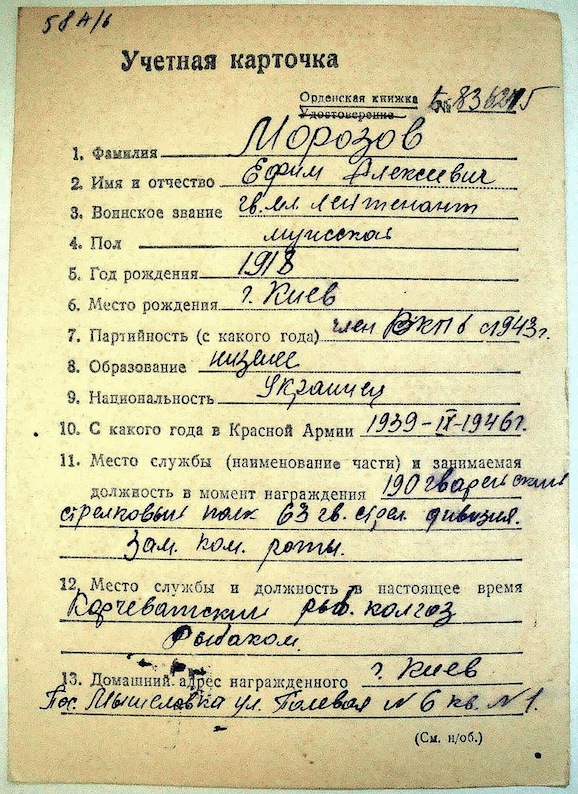 58 А/6
Учетная карточка
Орденская книжка
Удостоверение
1. Фамилия Морозов
2. Имя и отчество Ефим Алексеевич
3. Воинское звание гв. мл лейтенант
4. Пол мужской
5. Год рождения 1918
6. Место рождения г. Киев
7. Партийность (с какого года) член ВКПб с 1943г.
8. Образование низшее
9. Национальность Украинец
10. С какого года в Красной Армии 1939-IX-1946г.
11. Место службы (наименование части) и занимаемая
должность в момент награждения 190 гвардейский
стрелковый полк 63 гв. стрел. дивизия.
Зам. ком. роты.
12. Место службы и должность в настоящее время
Корчеватский рыб. колгоз
Рыбаком.
13. Домашний адрес награжденного г. Киев
Пос. Мышеловка ул. Полевая № 6 кв. № 1.
(См. н/об.)